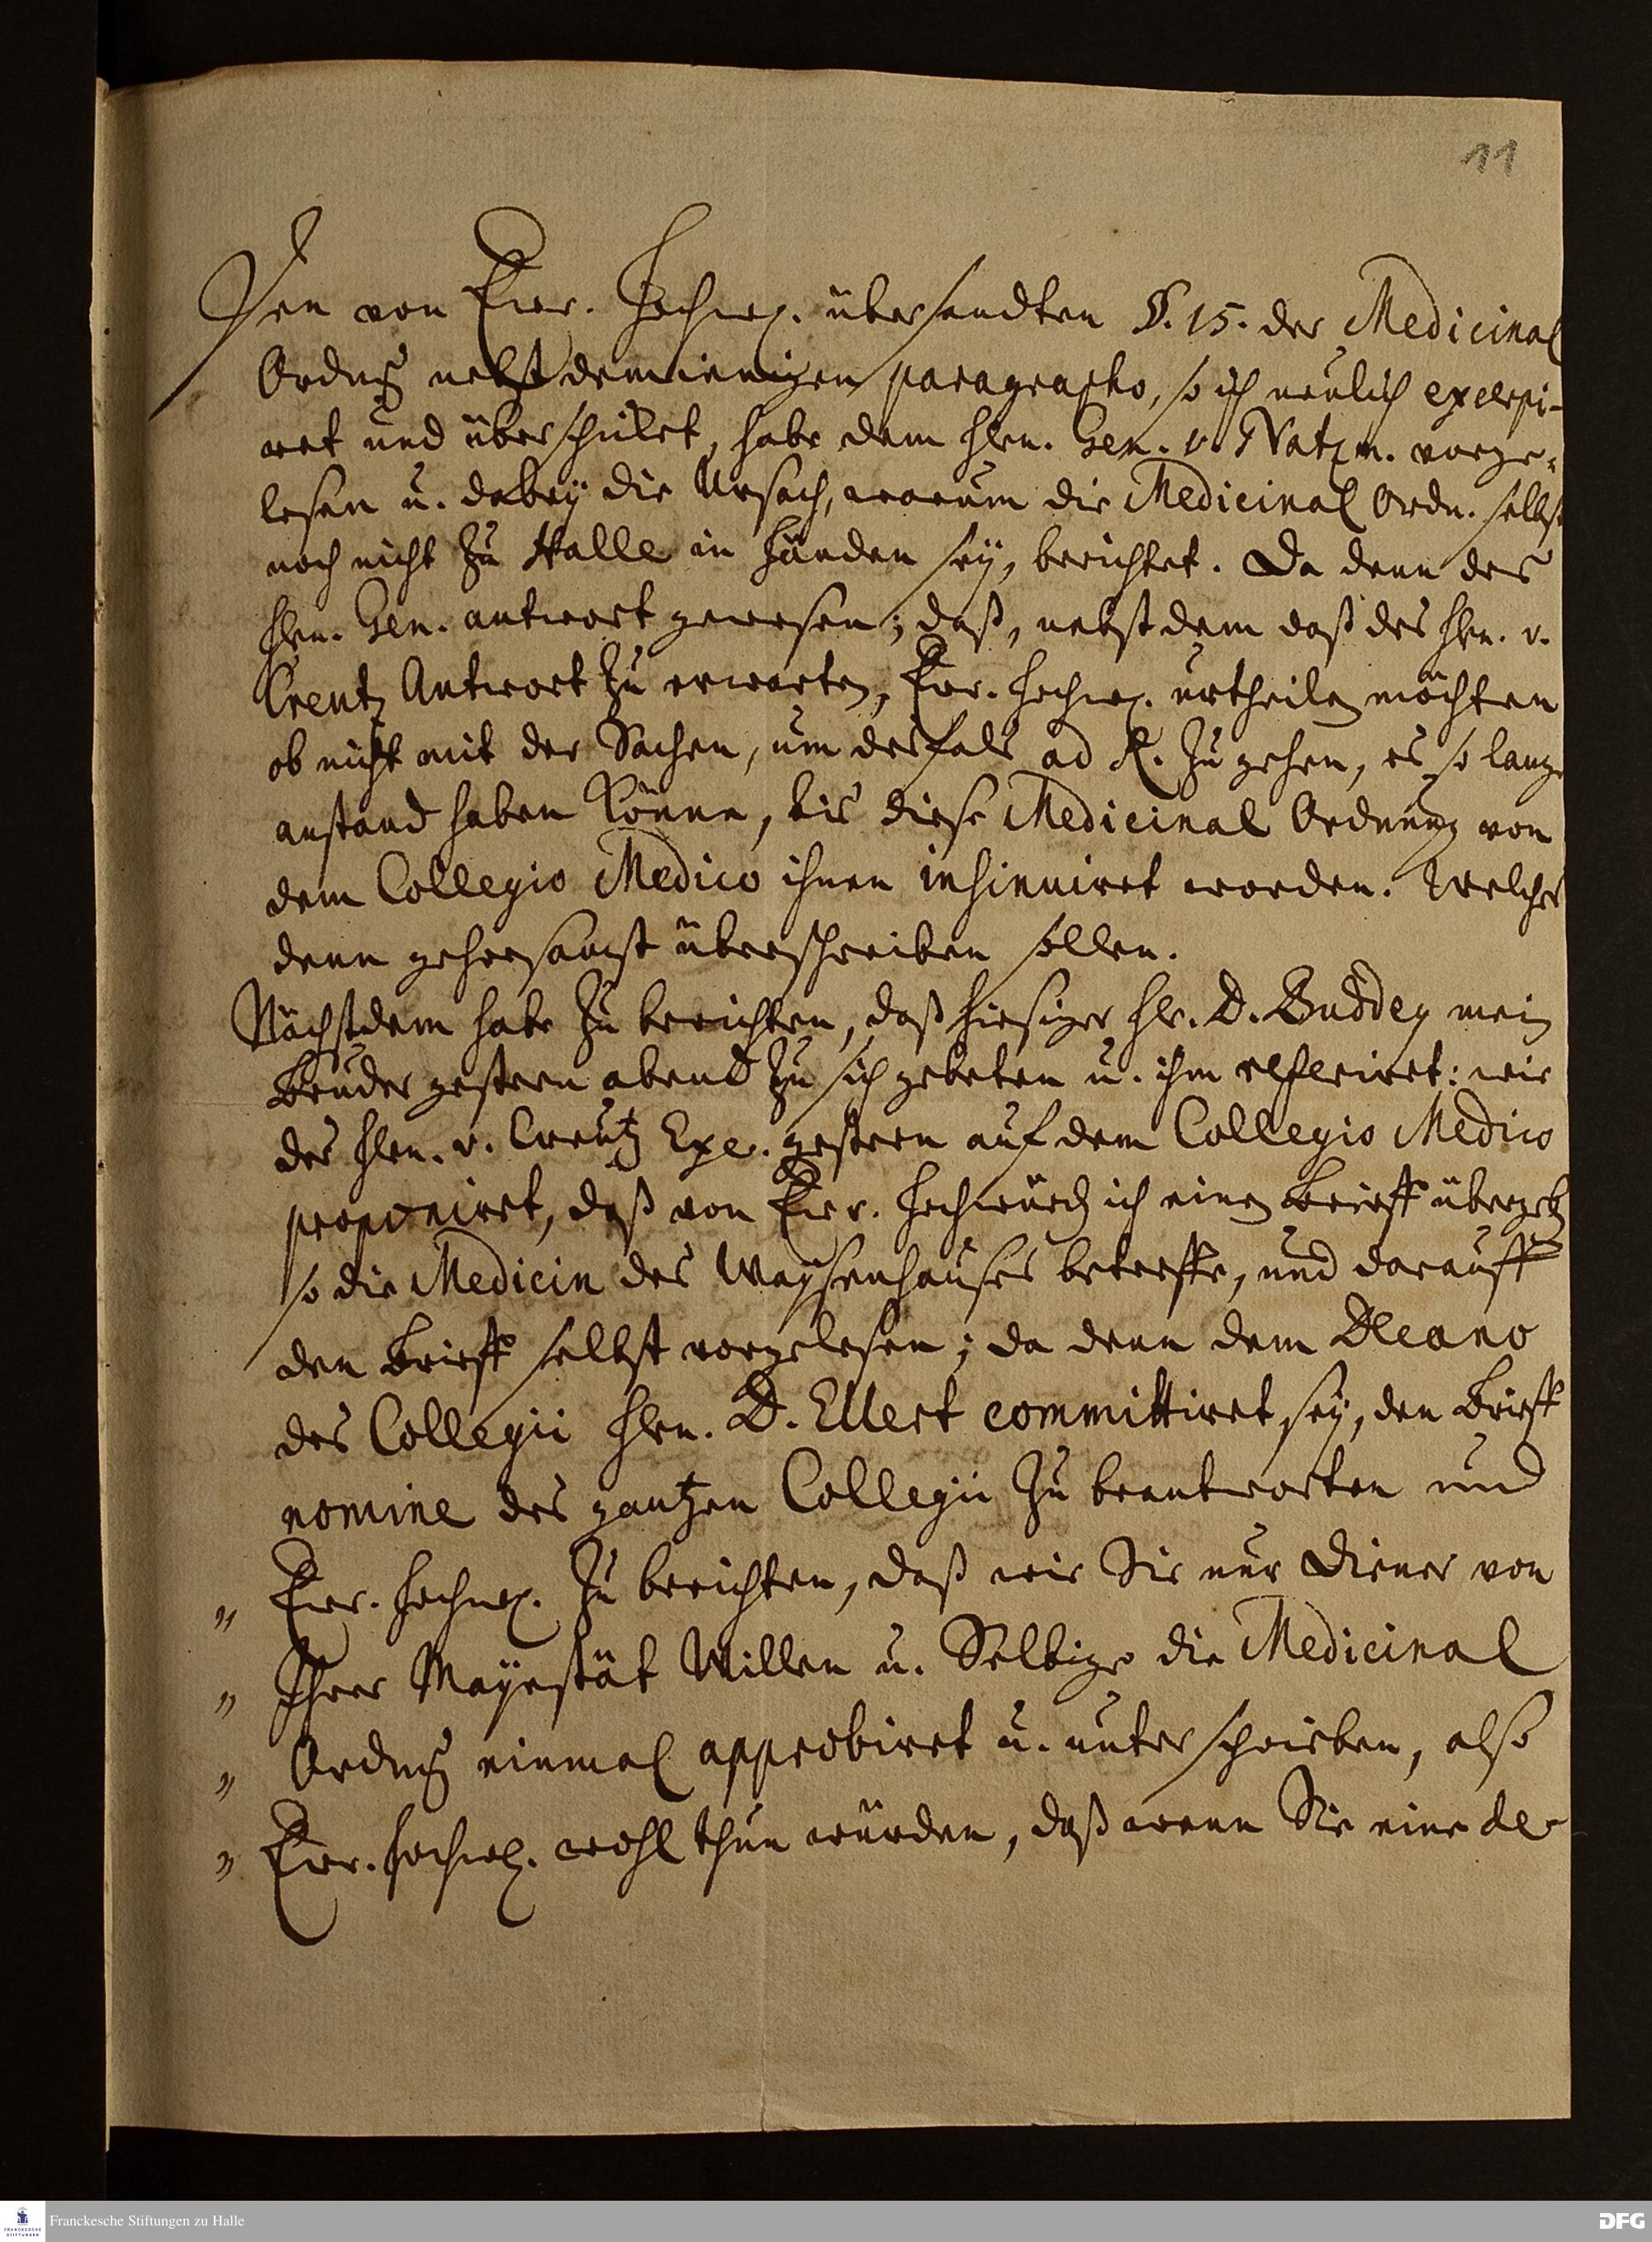 11
Den von Ewr. Hochw. übersandten §. 15. der Medicinal
Ordng nebst demienigen paragrapho, so ich neulich excerpi-
ret und überschicket, habe dem Hrn. Gen. v. Natzm. vorge-
lesen u. dabey die Ursach, warum die Medicinal Ordn. selbst
noch nicht zu Halle in händen sey, berichtet. Da denn des
Hrn. Gen. antwort gewesen; daß, nebst dem daß des Hrn. v.
Creutz Antwort zu erwarten, Ewr. Hochw. urtheilen möchten
ob nicht mit der Sachen, um desfals ad R. zu gehen, es so lange
anstand haben könne, bis diese Medicinal Ordnung von
dem Collegio Medico ihnen insinuiret worden. Welches
denn gehorsamst überschreiben sollen.
Nächstdem habe zu berichten, daß hiesiger Hr. D. Buddey mein
Bruder gestern abend zu sich gebeten u. ihm referiret: wie
des Hrn. v. Creutz Exc. gestern auf dem Collegio Medico
proponiret, daß von Ewr. Hochwürd ich einen Brieff übergeben
so die Medicin des Waysenhauses betreffe, und darauff
den Brieff selbst vorgelesen; da denn dem Decano
des Collegii Hrn. D. Ellert committiret sey, den Brieff
nomine des gantzen Collegii zu beantworten und
" Ewr. Hochw. zu berichten, daß wie Sie nur Diener von
" Ihrer Mayestät Willen u. Selbige die Medicinal
" Ordng einmal approbiret u. unterschrieben, also
" Ewr. Hochw. wohl thun würden, daß wenn Sie eine de-
Franckesche Stiftungen zu Halle
FRANCKESCHE STIFTUNGEN
DFG